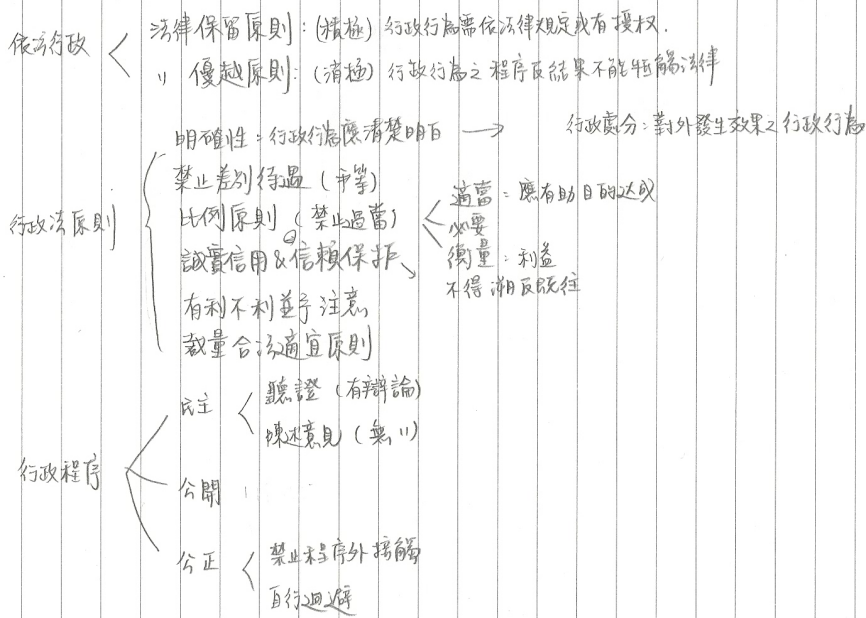 依法行政
法律保留原則:(積極) 行政行為需依法律規定或有授权.
〃 優越原則:(消極) 行政行為之程序及結果不能牴觸法律
行政法原則
明確性:行政行為應清楚明白 → 行政處分:對外發生效果之行政行為
禁止差別待遇 (平等)
比例原則 (禁止過當)
適當:應有助目的达成
必要
衡量:利益
誠實信用&信賴保护
不得溯及既往
有利不利並予注意
裁量合法適宜原則
行政程序
民主
聽證 (有辯論)
陳述意見 (無〃)
公開
公正
禁止程序外接觸
自行迴避